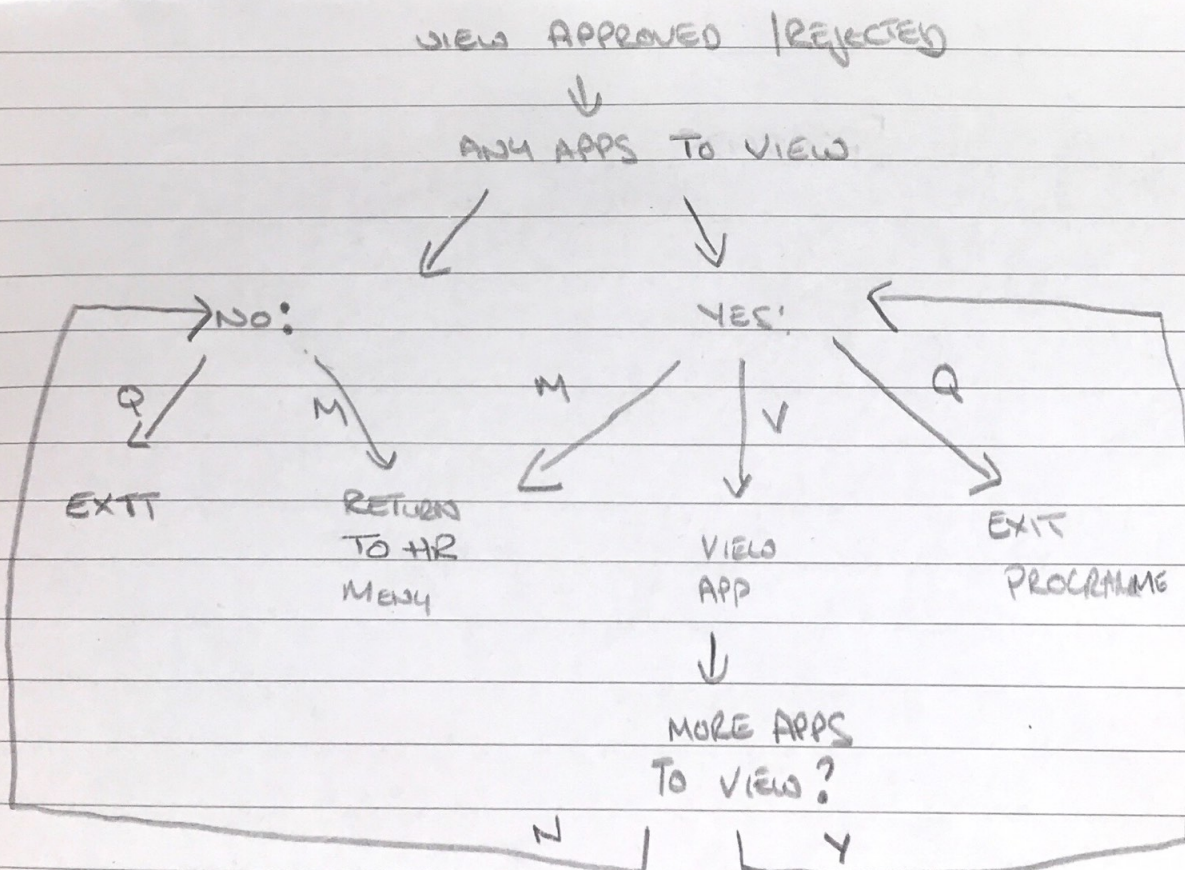 VIEW APPROVED / REJECTED
ANY APPS TO VIEW
NO:
YES:
Q
M
M
V
Q
EXIT
RETURN
TO HR
MENU
VIEW
APP
EXIT
PROGRAMME
MORE APPS
TO VIEW?
N
Y